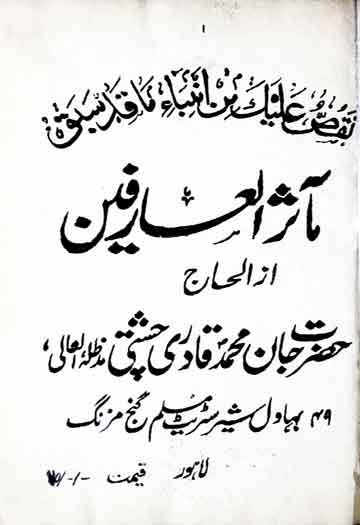 ۱
نَقُصُّ عَلَیْكَ مِنْ اَنْبَاءِ مَا قَدْ سَبَقَ
مآثر العارفین
از الحاج
حضرت جان محمد قادری چشتی مدظلہ العالی،
۴۹ بہاول شیر سٹریٹ مسلم گنج مزنگ
لاہور قیمت